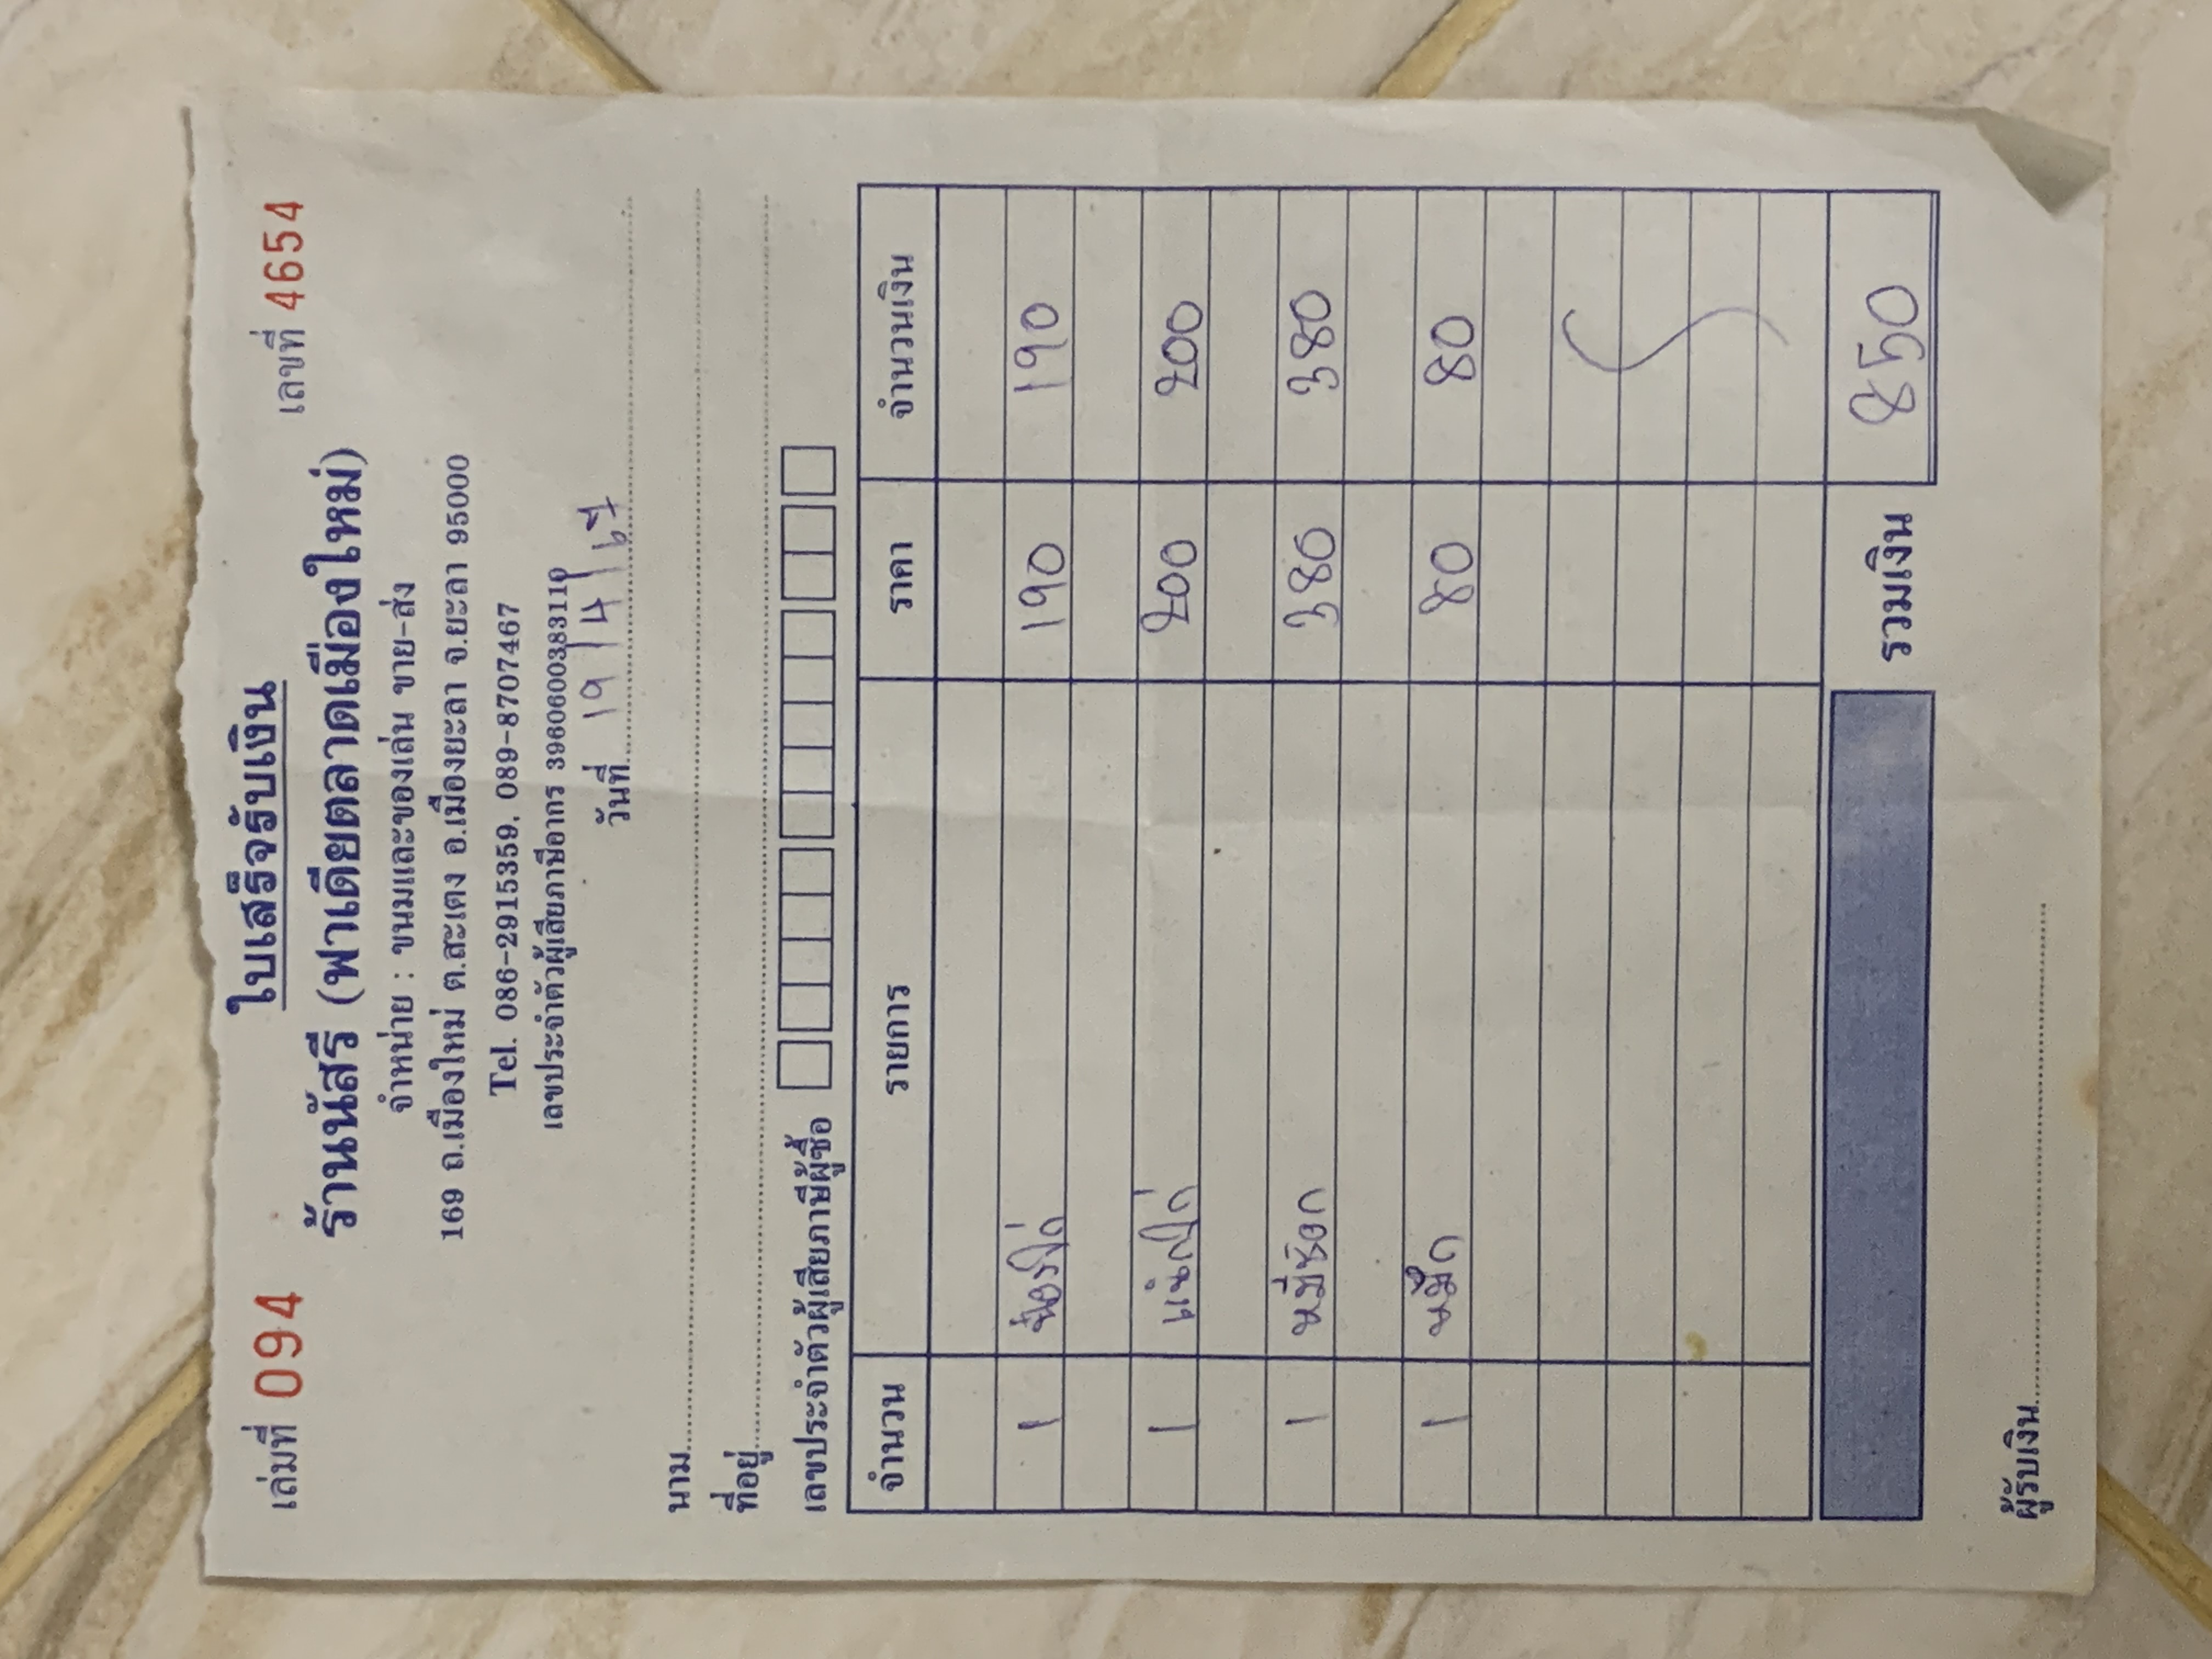 ใบเสร็จรับเงิน
เล่มที่ 094 เลขที่ 4654
ร้านนัสรี (ฟาเดียตลาดเมืองใหม่)
จำหน่าย : ขนมและของเล่น ขาย-ส่ง
169 ถ.เมืองใหม่ ต.สะเตง อ.เมืองยะลา จ.ยะลา 95000
Tel. 086-2915359, 089-8707467
เลขประจำตัวผู้เสียภาษีอากร 3960600383110
วันที่ 19/4/67
นาม
ที่อยู่
เลขประจำตัวผู้เสียภาษีผู้ซื้อ
จำนวน รายการ ราคา จำนวนเงิน
1 น่องไก่ 190 190
1 200 200
1 380 380
1 หมึก 80 80
รวมเงิน 850
ผู้รับเงิน